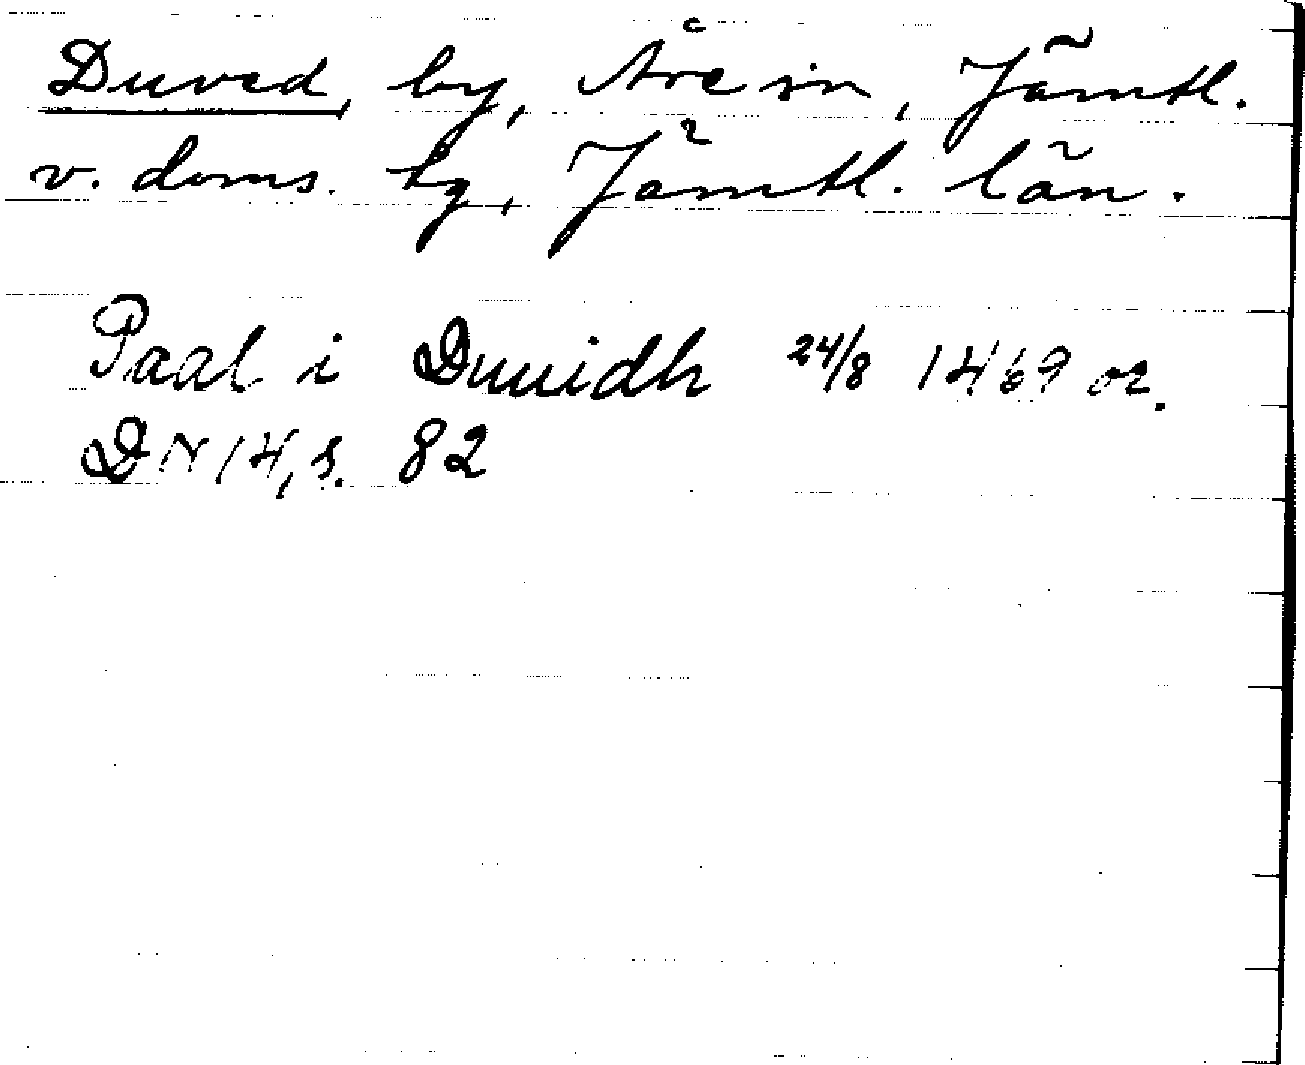 Duved, by, Åre sn, Jämtl.
v. doms. tg, Jämtl. län.
Paal i Duuidh 24/8 1469 or.
DN 14, s. 82